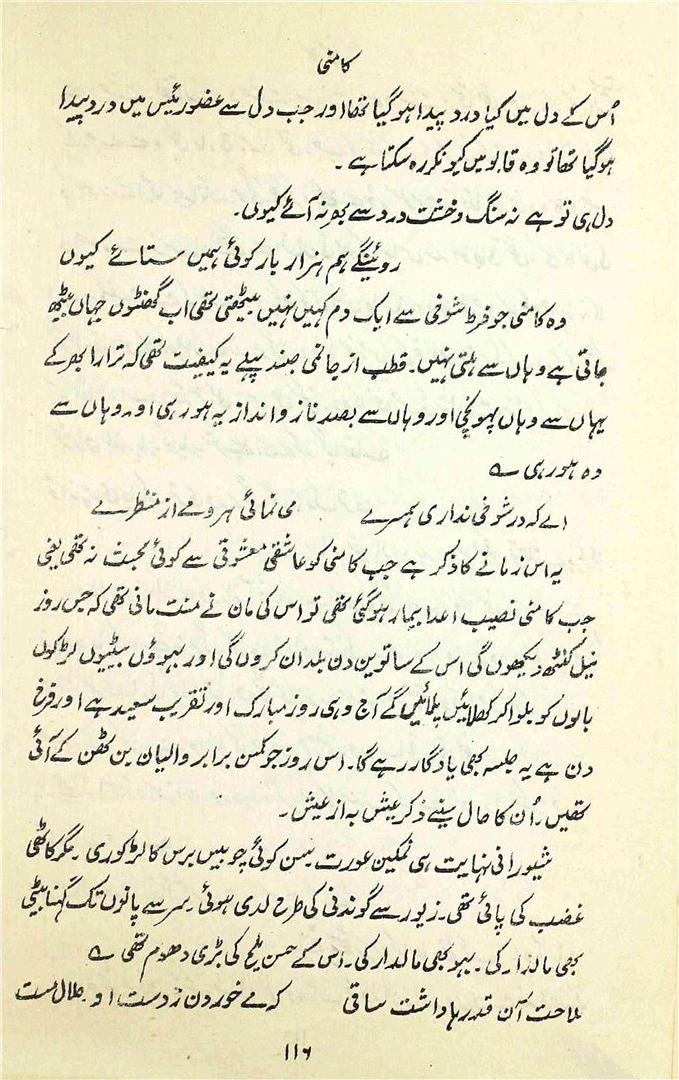 کامنی
اُس کے دل میں کیا درد پیدا ہو گیا تھا اور جب دل سے عضو رئیس میں درد پیدا
ہوگیا تھا تو وہ قابو میں کیونکر رہ سکتا ہے ۔
دل ہی تو ہے نہ سنگ وخشت درد سے بھر نہ آئے کیوں۔
روئینگے ہم ہزار بار کوئی ہمیں ستائے کیوں
وہ کامنی جو فرط شوخی سے ایک دم کہیں نہیں بیٹھتی تھی اب گھنٹوں جہاں بیٹھ
جاتی ہے وہاں سے ہلتی نہیں۔ قطب از جا نمی جنبد پہلے یہ کیفیت تھی کہ ترارا بھر کے
یہاں سے وہاں پہونچی اور وہاں سے بصد ناز و انداز یہ ہو رہی اور وہاں سے
وہ ہو رہی ؎
اے کہ در شوخی نداری ہمسرے می نمائی ہر دمے از منظرے
یہ اس زمانے کا ذکر ہے جب کامنی کو عاشقی معشوقی سے کوئی بحث نہ تھی یعنی
جب کامنی نصیب اعدا بیمار ہوگئی تھی تو اس کی مان نے منت مانی تھی کہ جس روز
نیل کنٹھ دیکھوں گی اس کے ساتوین دن بلدان کروں گی اور بہوؤں بیٹیوں لڑکوں
بالوں کو بلوا کر کھلائیں پلائیں گے آج وہی روز مبارک اور تقریب سعید ہے اور فرخ
دن ہے یہ جلسہ بھی یادگار رہے گا۔ اس روز جو کمسن برابر والیان بن ٹھن کے آئی
تھیں۔ اُن کا حال سنیے ذکر عیش بہ از عیش۔
شیورانی نہایت ہی نمکین عورت بسن کوئی چوبیس برس کا لڑکوری ۔ مگر کاٹھی
غضب کی پائی تھی۔ زیور سے گوندنی کی طرح لدی ہوئی۔ سر سے پانوں تک گہنا بیٹی
بھی مالدار کی۔ بہو بھی مالدار کی۔ اس کے حسن ملیح کی بڑی دھوم تھی ؎
ملاحت آن قدرہا داشت ساقی کہ مے خوردن زدست او حلال است
۱۱۶